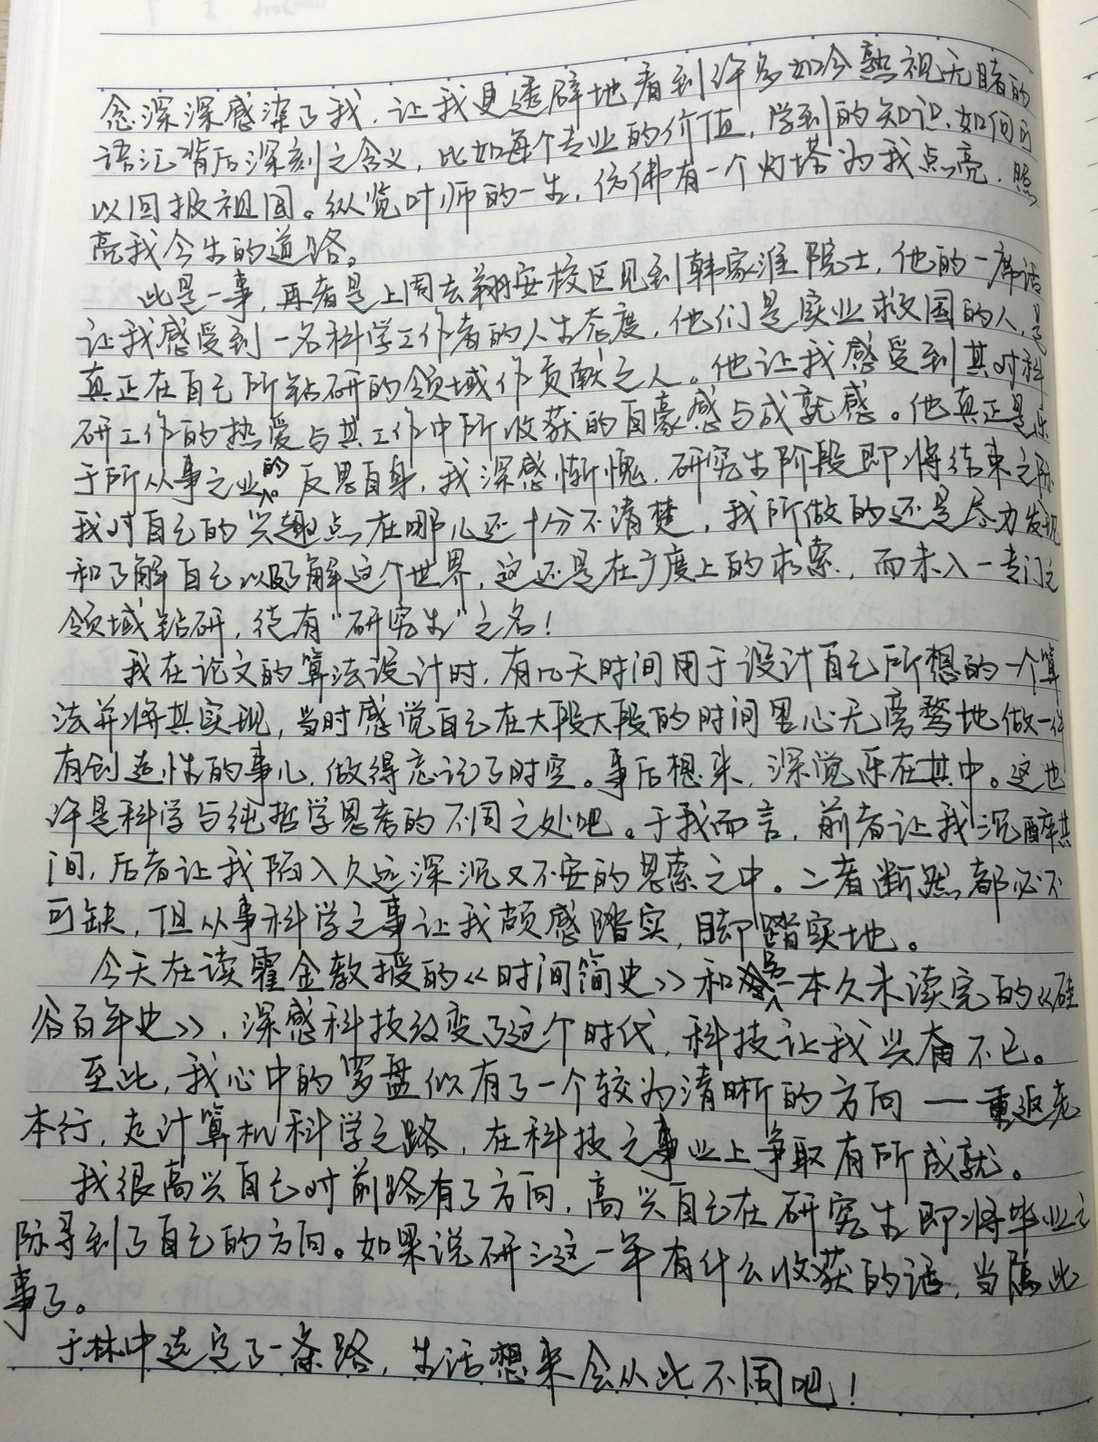 念深深感染了我，让我更透辟地看到许多如今熟视无睹的
语汇背后深刻之含义，比如每个专业的价值，学到的知识，如何可
以回报祖国。纵览叶师的一生，仿佛有一个灯塔为我点亮，照
亮我今生的道路。
此是一事，再者是上周去翔安校区见到韩家淮院士，他的一席话
让我感受到一名科学工作者的人生态度，他们是实业救国的人，是
真正在自己所钻研的领域作贡献之人。他让我感受到其对科
研工作的热爱与其工作中所收获的自豪感与成就感。他真正是乐
于所从事之业的。反思自身，我深感惭愧，研究生阶段即将结束之际
我对自己的兴趣点在哪儿还十分不清楚，我所做的还是尽力发现
和了解自己以及了解这个世界，这还是在广度上的求索，而未入一专门之
领域钻研，徒有“研究生”之名！
我在论文的算法设计时，有几天时间用于设计自己所想的一个算
法并将其实现，当时感觉自己在大段大段的时间里心无旁骛地做一件
有创造性的事儿，做得忘记了时空。事后想来，深觉乐在其中。这也
许是科学与纯哲学思考的不同之处吧。于我而言，前者让我沉醉其
间，后者让我陷入久远深沉又不安的思索之中。二者断然都必不
可缺，但从事科学之事让我颇感踏实，脚踏实地。
今天在读霍金教授的《时间简史》和另一本久未读完的《硅
谷百年史》，深感科技改变了这个时代，科技让我兴奋不已。
至此，我心中的罗盘似有了一个较为清晰的方向——重返老
本行，走计算机科学之路，在科技之事业上争取有所成就。
我很高兴自己对前路有了方向，高兴自己在研究生即将毕业之
际寻到了自己的方向。如果说研三这一年有什么收获的话，当属此
事了。
于林中选定了一条路，生活想来会从此不同吧！